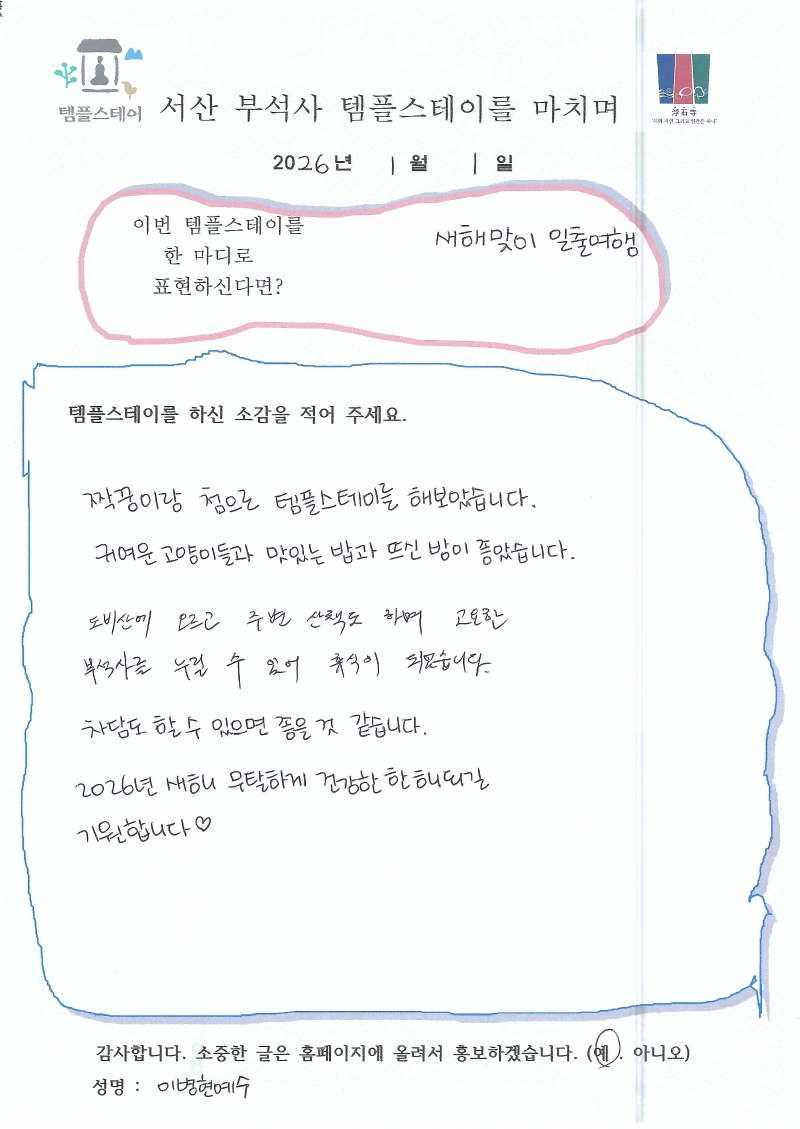 템플스테이
서산 부석사 템플스테이를 마치며
浮石寺
2026년 1월 1일
이번 템플스테이를
한 마디로
표현하신다면?
새해맞이 일출여행
템플스테이를 하신 소감을 적어 주세요.
짝꿍이랑 첨으로 템플스테이를 해보았습니다.
귀여운 고양이들과 맛있는 밥과 뜨신 방이 좋았습니다.
도비산에 오르고 주변 산책도 하며 고요한
부석사를 누릴 수 있어 휴식이 되었습니다.
차담도 할 수 있으면 좋을 것 같습니다.
2026년 새해 무탈하게 건강한 한 해 되길
기원합니다♡
감사합니다. 소중한 글은 홈페이지에 올려서 홍보하겠습니다. (예. 아니오)
성명 : 이병현예수